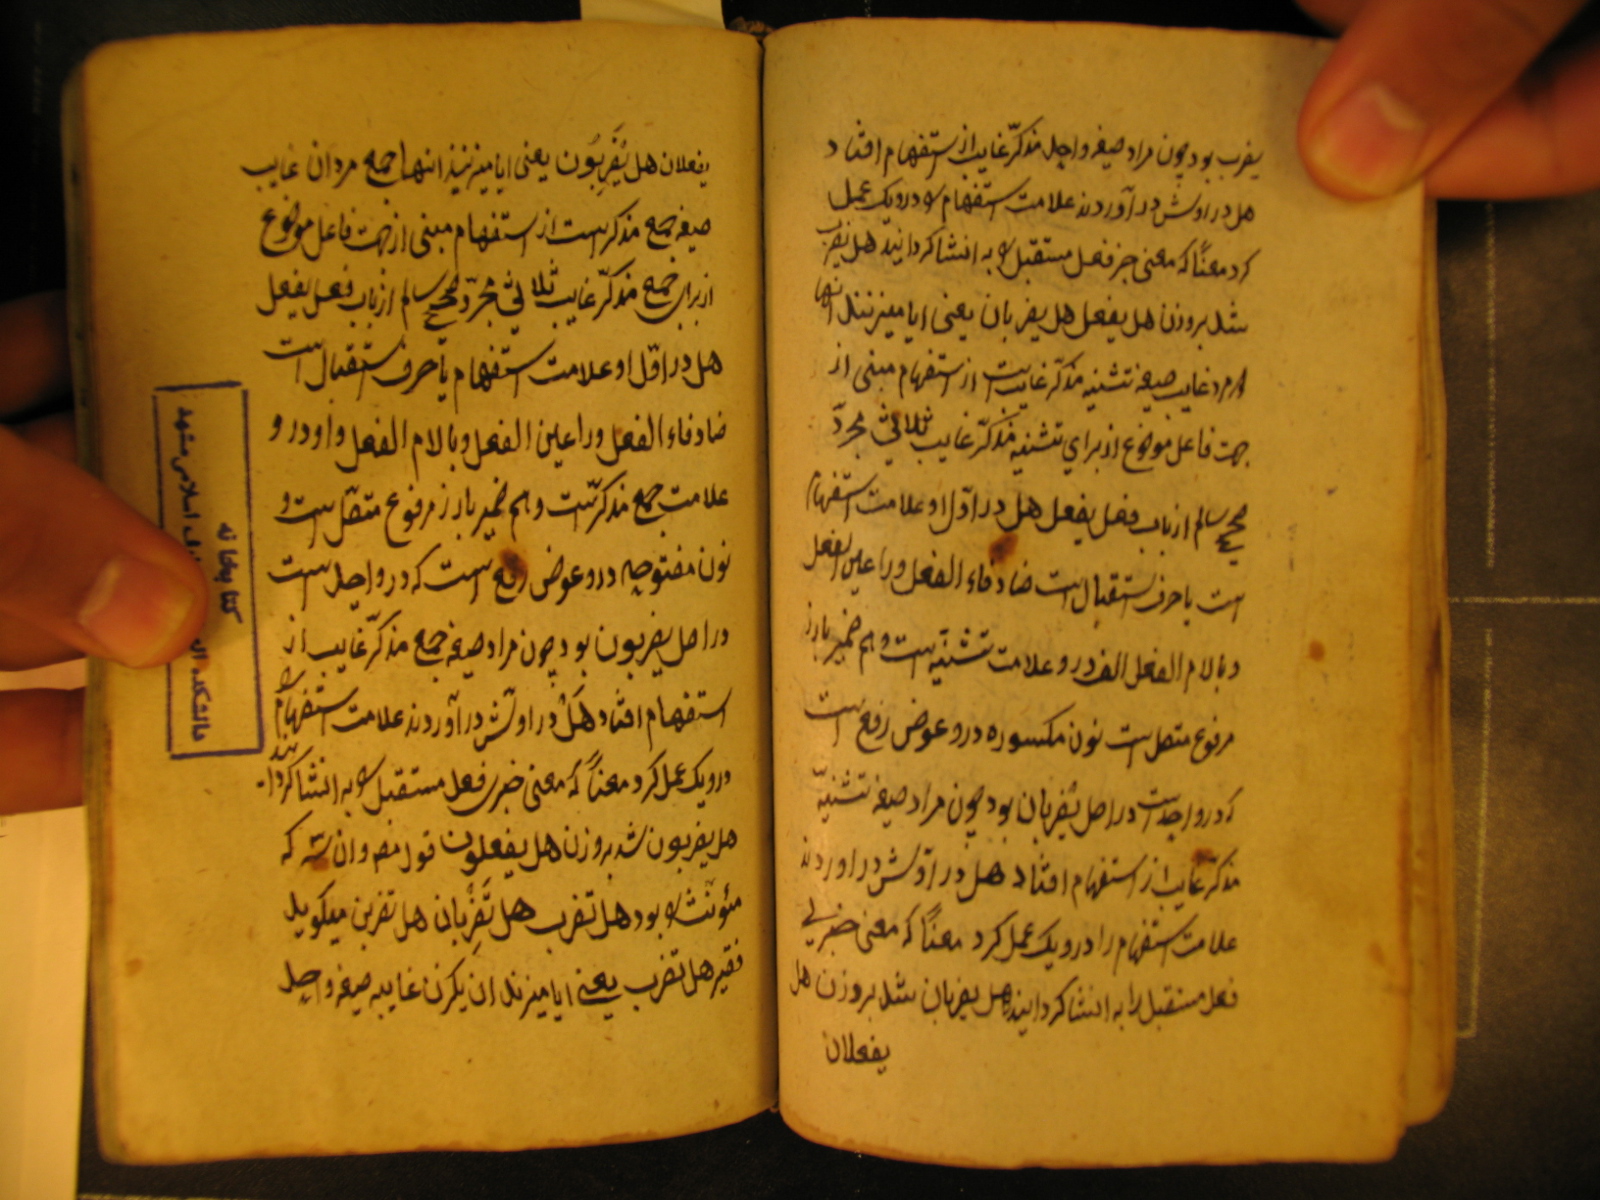 یضرب بود چون مراد صیغه واحد مذکّر غایب از استفهام افتاد
هل در اولش در آوردند علامت استفهام را درو یک عمل
کرد معنًا که معنی خبر فعل مستقبل را به انشا کردانید هل یضرب
شد بروزن هل یفعل هل یضربان یعنی ایا میزنند انها
دو مرد غایب صیغه تثنیه مذکّر غایبست از استفهام مبنی از
جهت فاعل موضوع از برای تثنیه مذکّر غایب ثلاثی مجرّد
صحیح سالم از باب فعل یفعل هل در اوّل او علامت استفهام
است یا حرف استقبال است ضاد فاء الفعل و را عین الفعل
و با لام الفعل الف درو علامت تثنیه است و هم ضمیر بارز
مرفوع متصل است نون مکسوره درو عوض رفع است
که در واحد است در اصل یضربان بود چون مراد صیغه تثنیّه
مذکر غایب از استفهام افتاد هل در اوّلش در اوردند
علامت استفهام را درو یک عمل کرد معنًا که معنی خبری
فعل مستقبل را به انشا کردانید هل یضربان شد بروزن هل
یفعلان
یفعلان هل یَضْرِبُون یعنی ایا میزنند انها جمع مردان غایب
صیغه جمع مذکر است از استفهام مبنی از جهت فاعل موضوع
از برای جمع مذکّر غایب ثلاثی مجرّد صحیح سالم از باب فعل یفعل
هل در اوّل او علامت استفهام یا حرف استقبال است
ضاد فاء الفعل و را عین الفعل و با لام الفعل واو درو
علامت جمع مذکرّست و هم ضمیر بارز مرفوع متصّل است و
نون مفتوحه درو عوض رفع است که در واحد است
در اصل یضربون بود چون مراد صیغه جمع مذکّر غایب از
استفهام افتاد هَل در اولّش در آوردند علامت استفهام را
درو یک عمل کرد معنًا که معنی خبری فعل مستقبل را به انشا کردانید
هل یضربون شد بروزن هل یفعلون قوله مصـ وان سه که
مئونّث را بود هل تضرب هل تَضْرِبان هل تضربن میکوید
فقیر هل تضرب یعنی ایا میزند ان یکزن غایبه صیغه واحد
کتابخانه
دانشکده الهیات و معارف اسلامی مشهد